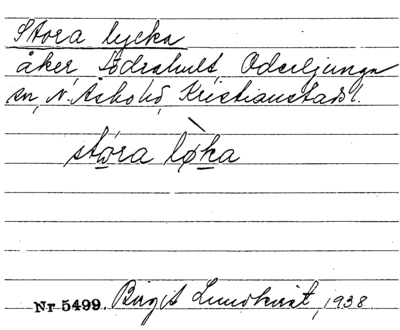 Stora lycka
åker, Södrahult, Oderljunga
sn, N. Åsbo hd, Kristianstads l.
stóra lø̀ka
Nr 5499. Birgit Lundkvist, 1938.